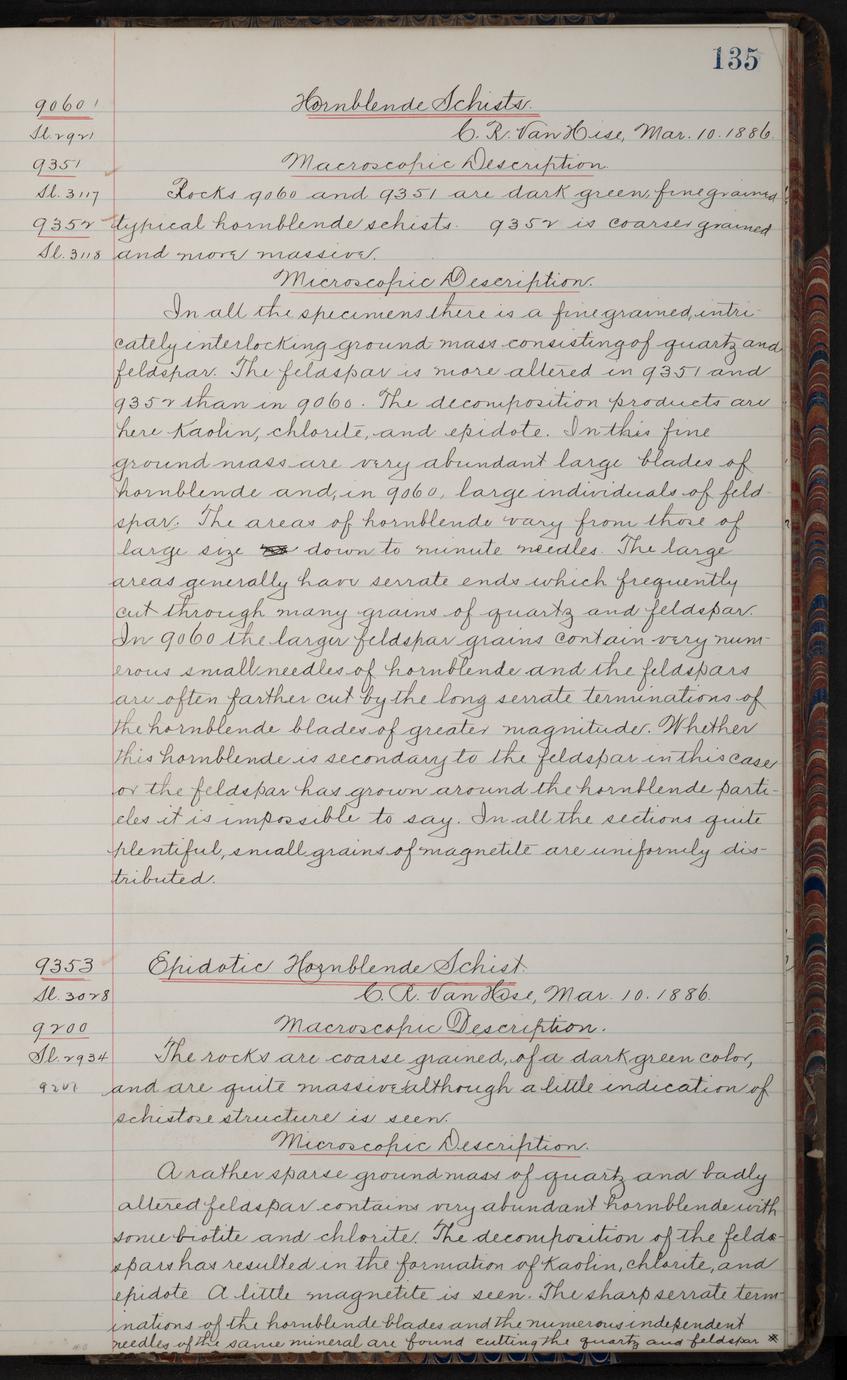 135
9060 Hornblende Schists.
Sl. 2921 C. R. Van Hise, Mar. 10. 1886.
9351 Macroscopic Description.
Sl. 3117 Rocks 9060 and 9351 are dark green, fine grained
9352 typical hornblende schists. 9352 is coarser grained
Sl. 3118 and more massive.
Microscopic Description.
In all the specimens there is a fine grained, intri-
cately interlocking ground mass consisting of quartz and
feldspar. The feldspar is more altered in 9351 and
9352 than in 9060. The decomposition products are
here Kaolin, chlorite, and epidote. In this fine
ground mass are very abundant large blades of
hornblende and, in 9060, large individuals of feld-
spar. The areas of hornblende vary from those of
large size down to minute needles. The large
areas generally have serrate ends which frequently
cut through many grains of quartz and feldspar.
In 9060 the larger feldspar grains contain very num-
erous small needles of hornblende and the feldspars
are often farther cut by the long serrate terminations of
the hornblende blades of greater magnitude. Whether
this hornblende is secondary to the feldspar in this case
or the feldspar has grown around the hornblende parti-
cles it is impossible to say. In all the sections quite
plentiful, small grains of magnetite are uniformly dis-
tributed.
9353 Epidotic Hornblende Schist.
Sl. 3028 C. R. Van Hise, Mar. 10. 1886.
9200 Macroscopic Description.
Sl. 2934 The rocks are coarse grained, of a dark green color,
9201 and are quite massive although a little indication of
schistose structure is seen.
Microscopic Description.
A rather sparse ground mass of quartz and badly
altered feldspar contains very abundant hornblende with
some biotite and chlorite. The decomposition of the feld-
spars has resulted in the formation of Kaolin, chlorite, and
epidote A little magnetite is seen. The sharp serrate term-
inations of the hornblende blades and the numerous independent
needles of the same mineral are found cutting the quartz and feldspar *